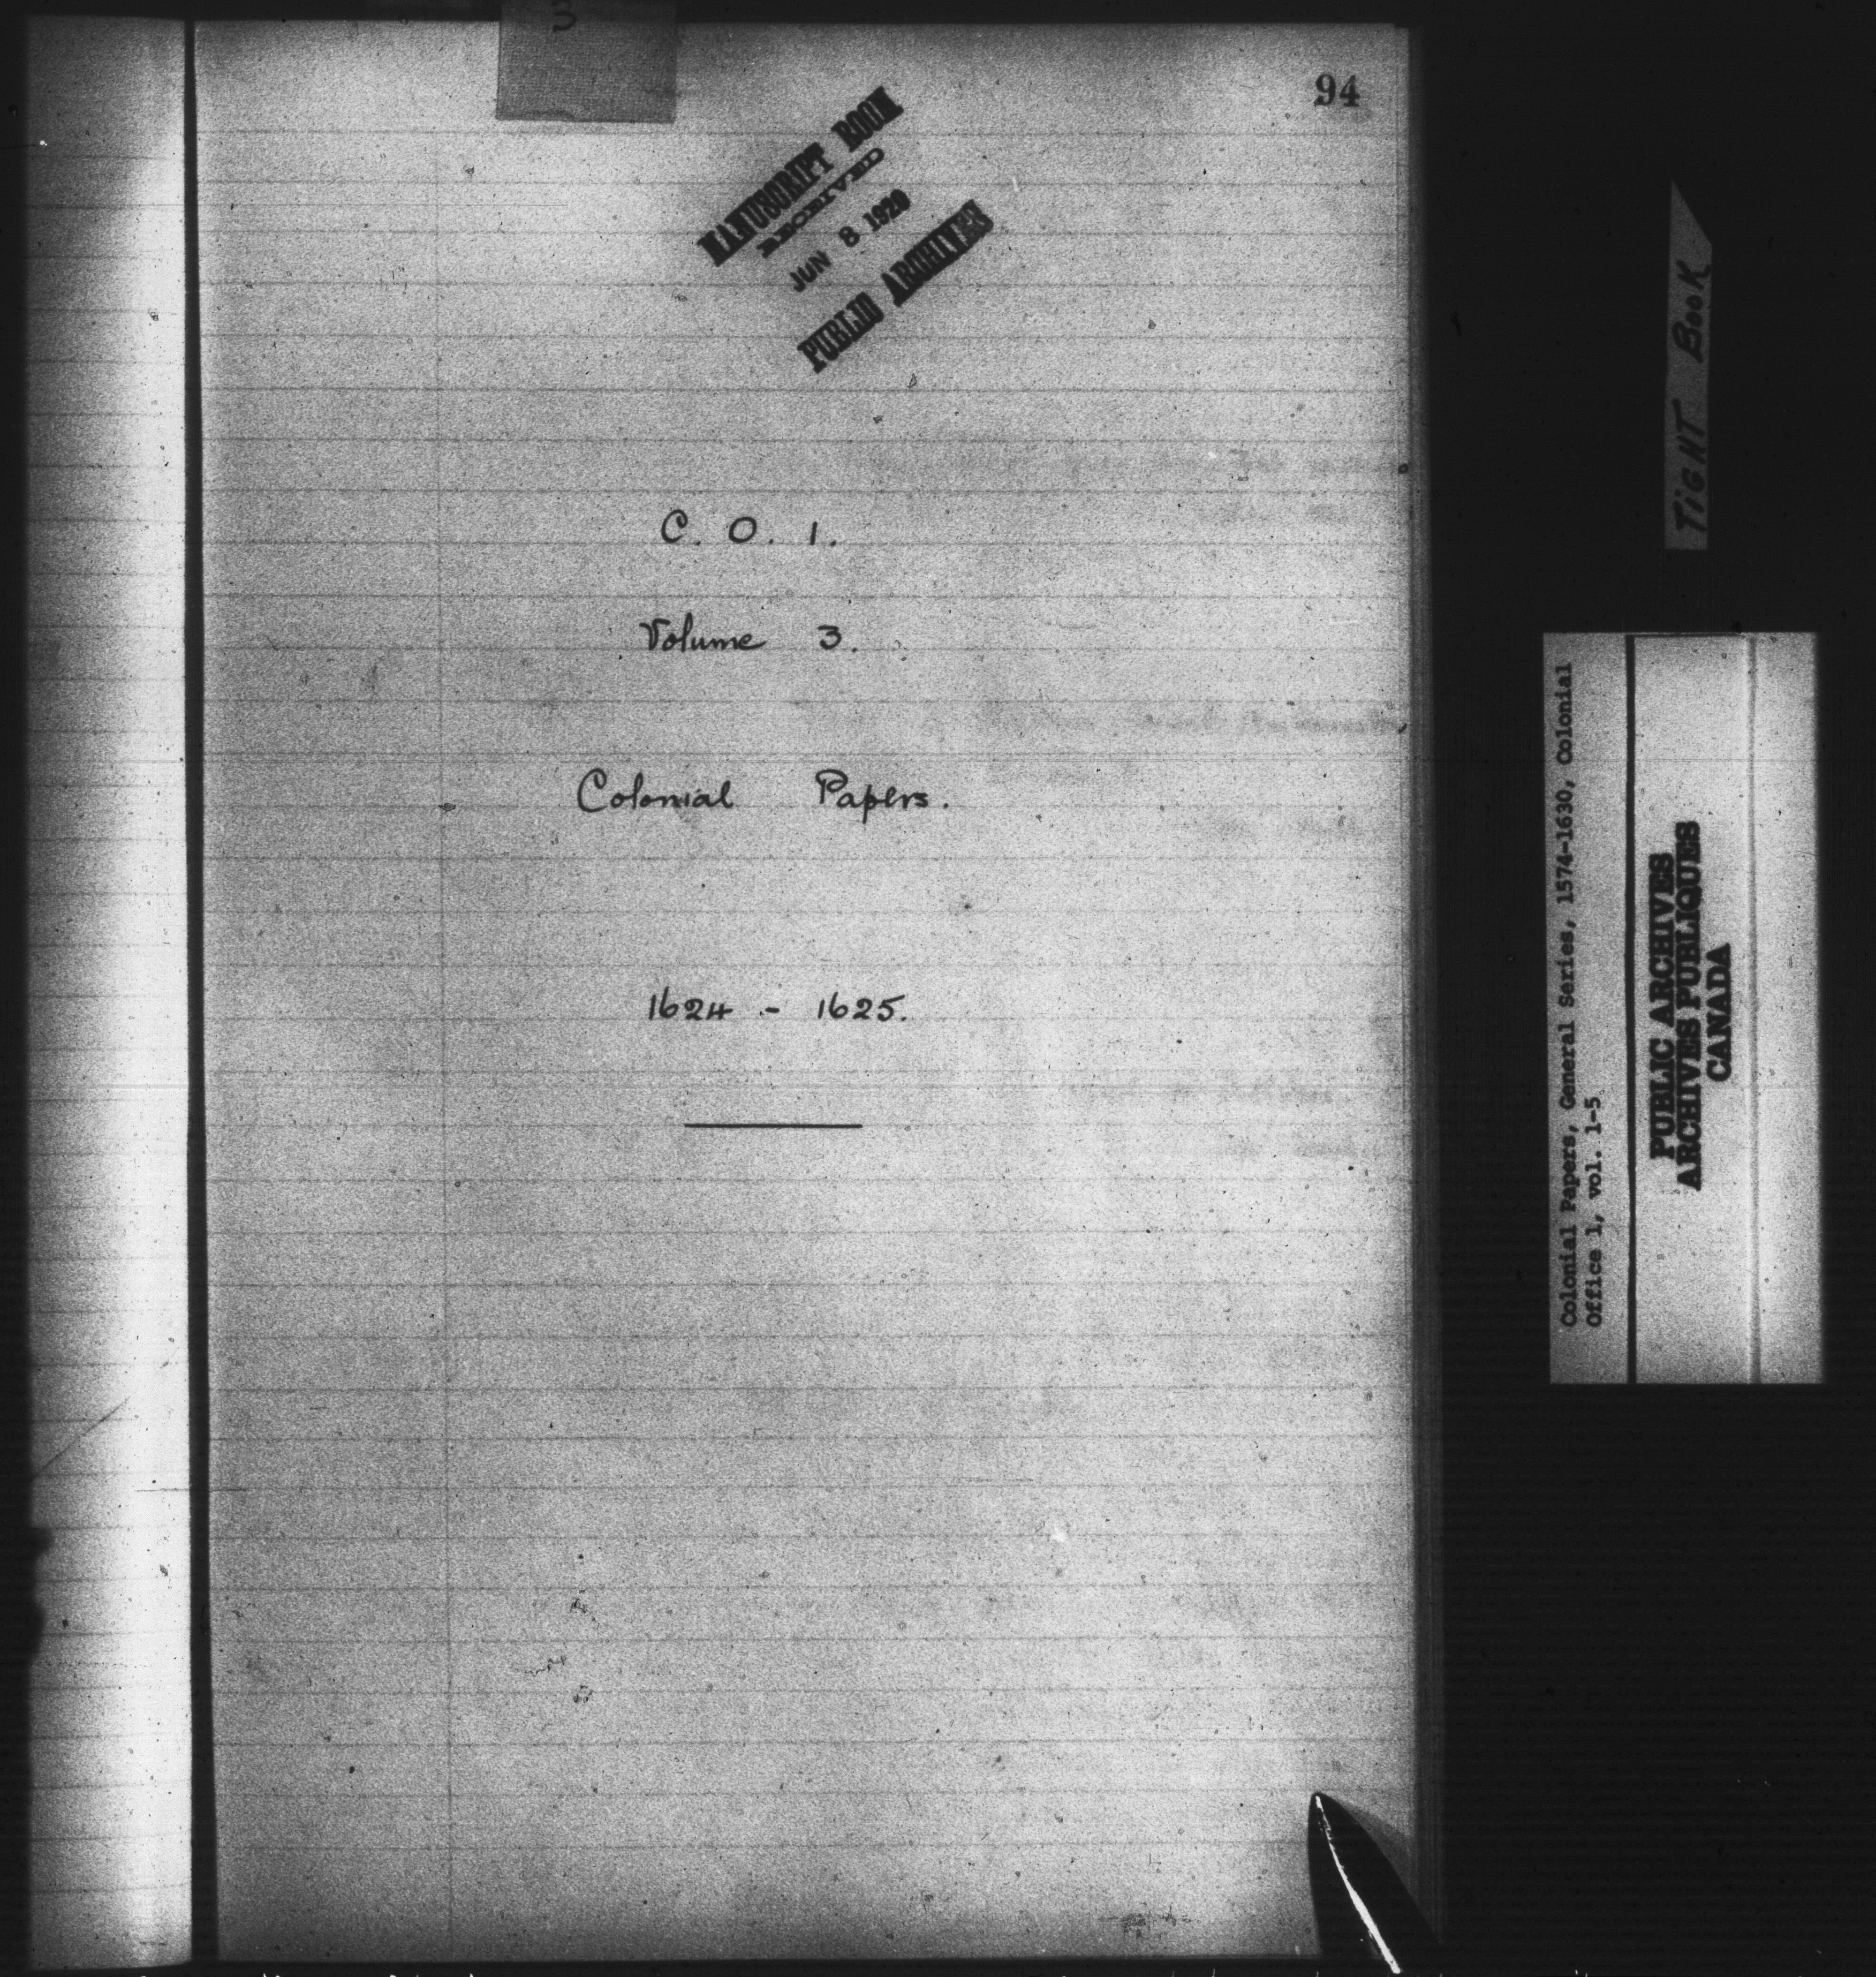 3
94
MANUSCRIPT ROOM
RECEIVED
JUN 8 1929
PUBLIC ARCHIVES
C. O. 1.
Volume 3.
Colonial Papers.
1624 - 1625.
TiGHT BooK
Colonial Papers, General Series, 1574-1630, Colonial
Office 1, vol. 1-5
PUBLIC ARCHIVES
ARCHIVES PUBLIQUES
CANADA